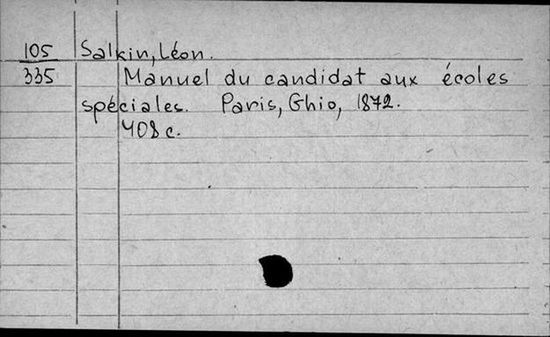 105 Salkin, Léon.
335 Manuel du candidat aux écoles
spéciales. Paris, Ghio, 1872.
408 c.